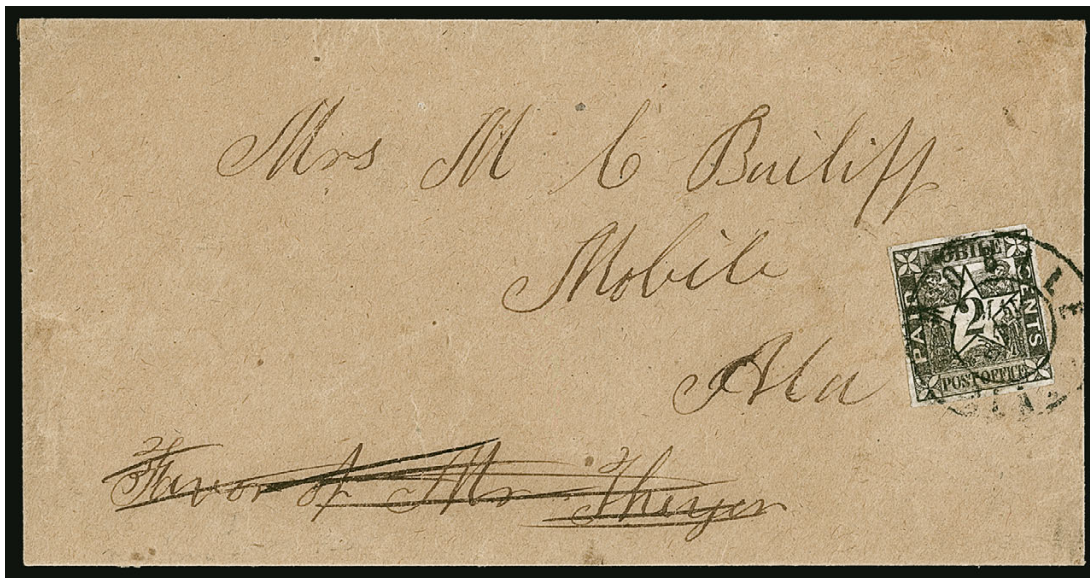 Mrs M C Bailiff
Mobile
Ala
MOBILE
PAID
2
CENTS
POST OFFICE
Favor of Mr Thayer